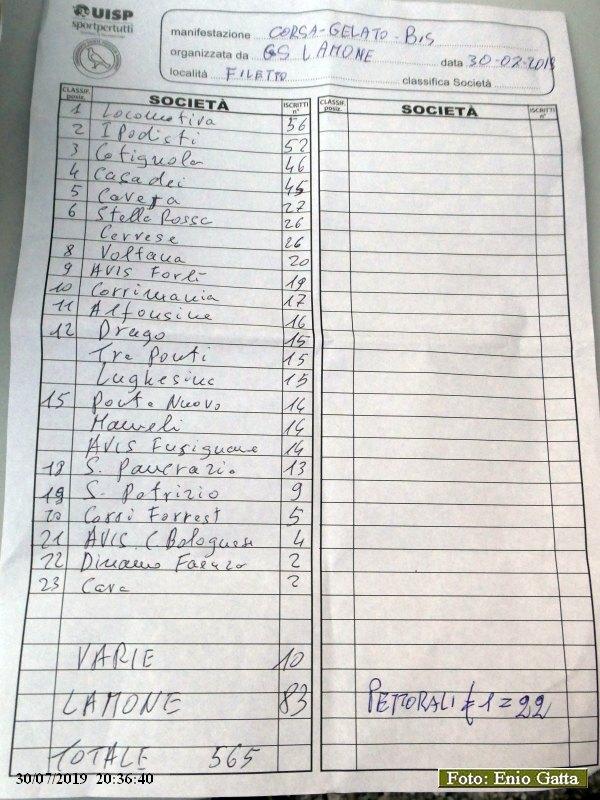 UISP
sportpertutti
manifestazione CORSA-GELATO-BIS
organizzata da GS LAMONE data 30-07-2019
località FILETTO classifica Società
CLASSIF. posiz. SOCIETÀ ISCRITTI n°
1 Locomotiva 56
2 I Podisti 52
3 Cotignola 46
4 Casadei 45
5 Cavezza 27
6 Stella Rossa 26
Cervese 26
8 Voltana 20
9 AVIS Forlì 19
10 Corrimania 17
11 Alfonsine 16
12 Drago 15
Tre Ponti 15
Lughesina 15
15 Porto Nuovo 14
Mameli 14
AVIS Fusignano 14
18 S. Pancrazio 13
19 S. Patrizio 9
20 Corri Forrest 5
21 AVIS C. Bolognese 4
22 Dinamo Faenza 2
23 Cava 2
VARIE 10
LAMONE 83
TOTALE 565
CLASSIF. posiz. SOCIETÀ ISCRITTI n°
PETTORALI € 1 = 22
30/07/2019 20:36:40
Foto: Enio Gatta